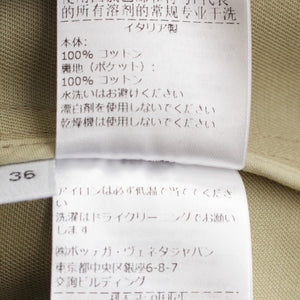 的所有溶剂的常规专业干洗
イタリア製
本体:
100% コットン
裏地(ポケット):
100% コットン
水洗いはお避けください
漂白剤を使用しないでください
乾燥機は使用しないでください
36
アイロンは必ず低温で当ててください
洗濯はドライクリーニングでお願いします
㈱ボッテガ・ヴェネタジャパン
東京都中央区銀座6-8-7
交詢ビルディング